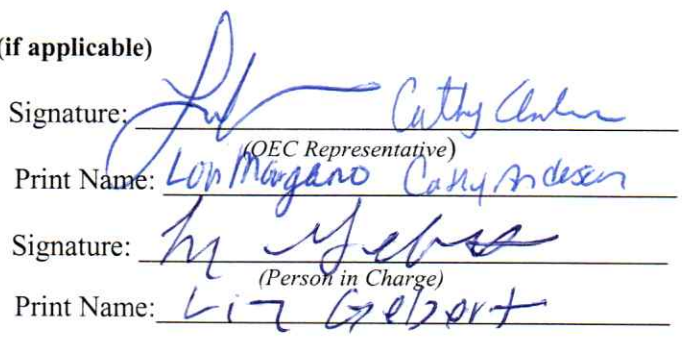 (if applicable)
Signature: Cathy
(OEC Representative)
Print Name: Lori Mangano Cathy Andersen
Signature:
(Person in Charge)
Print Name: Liz Gebert